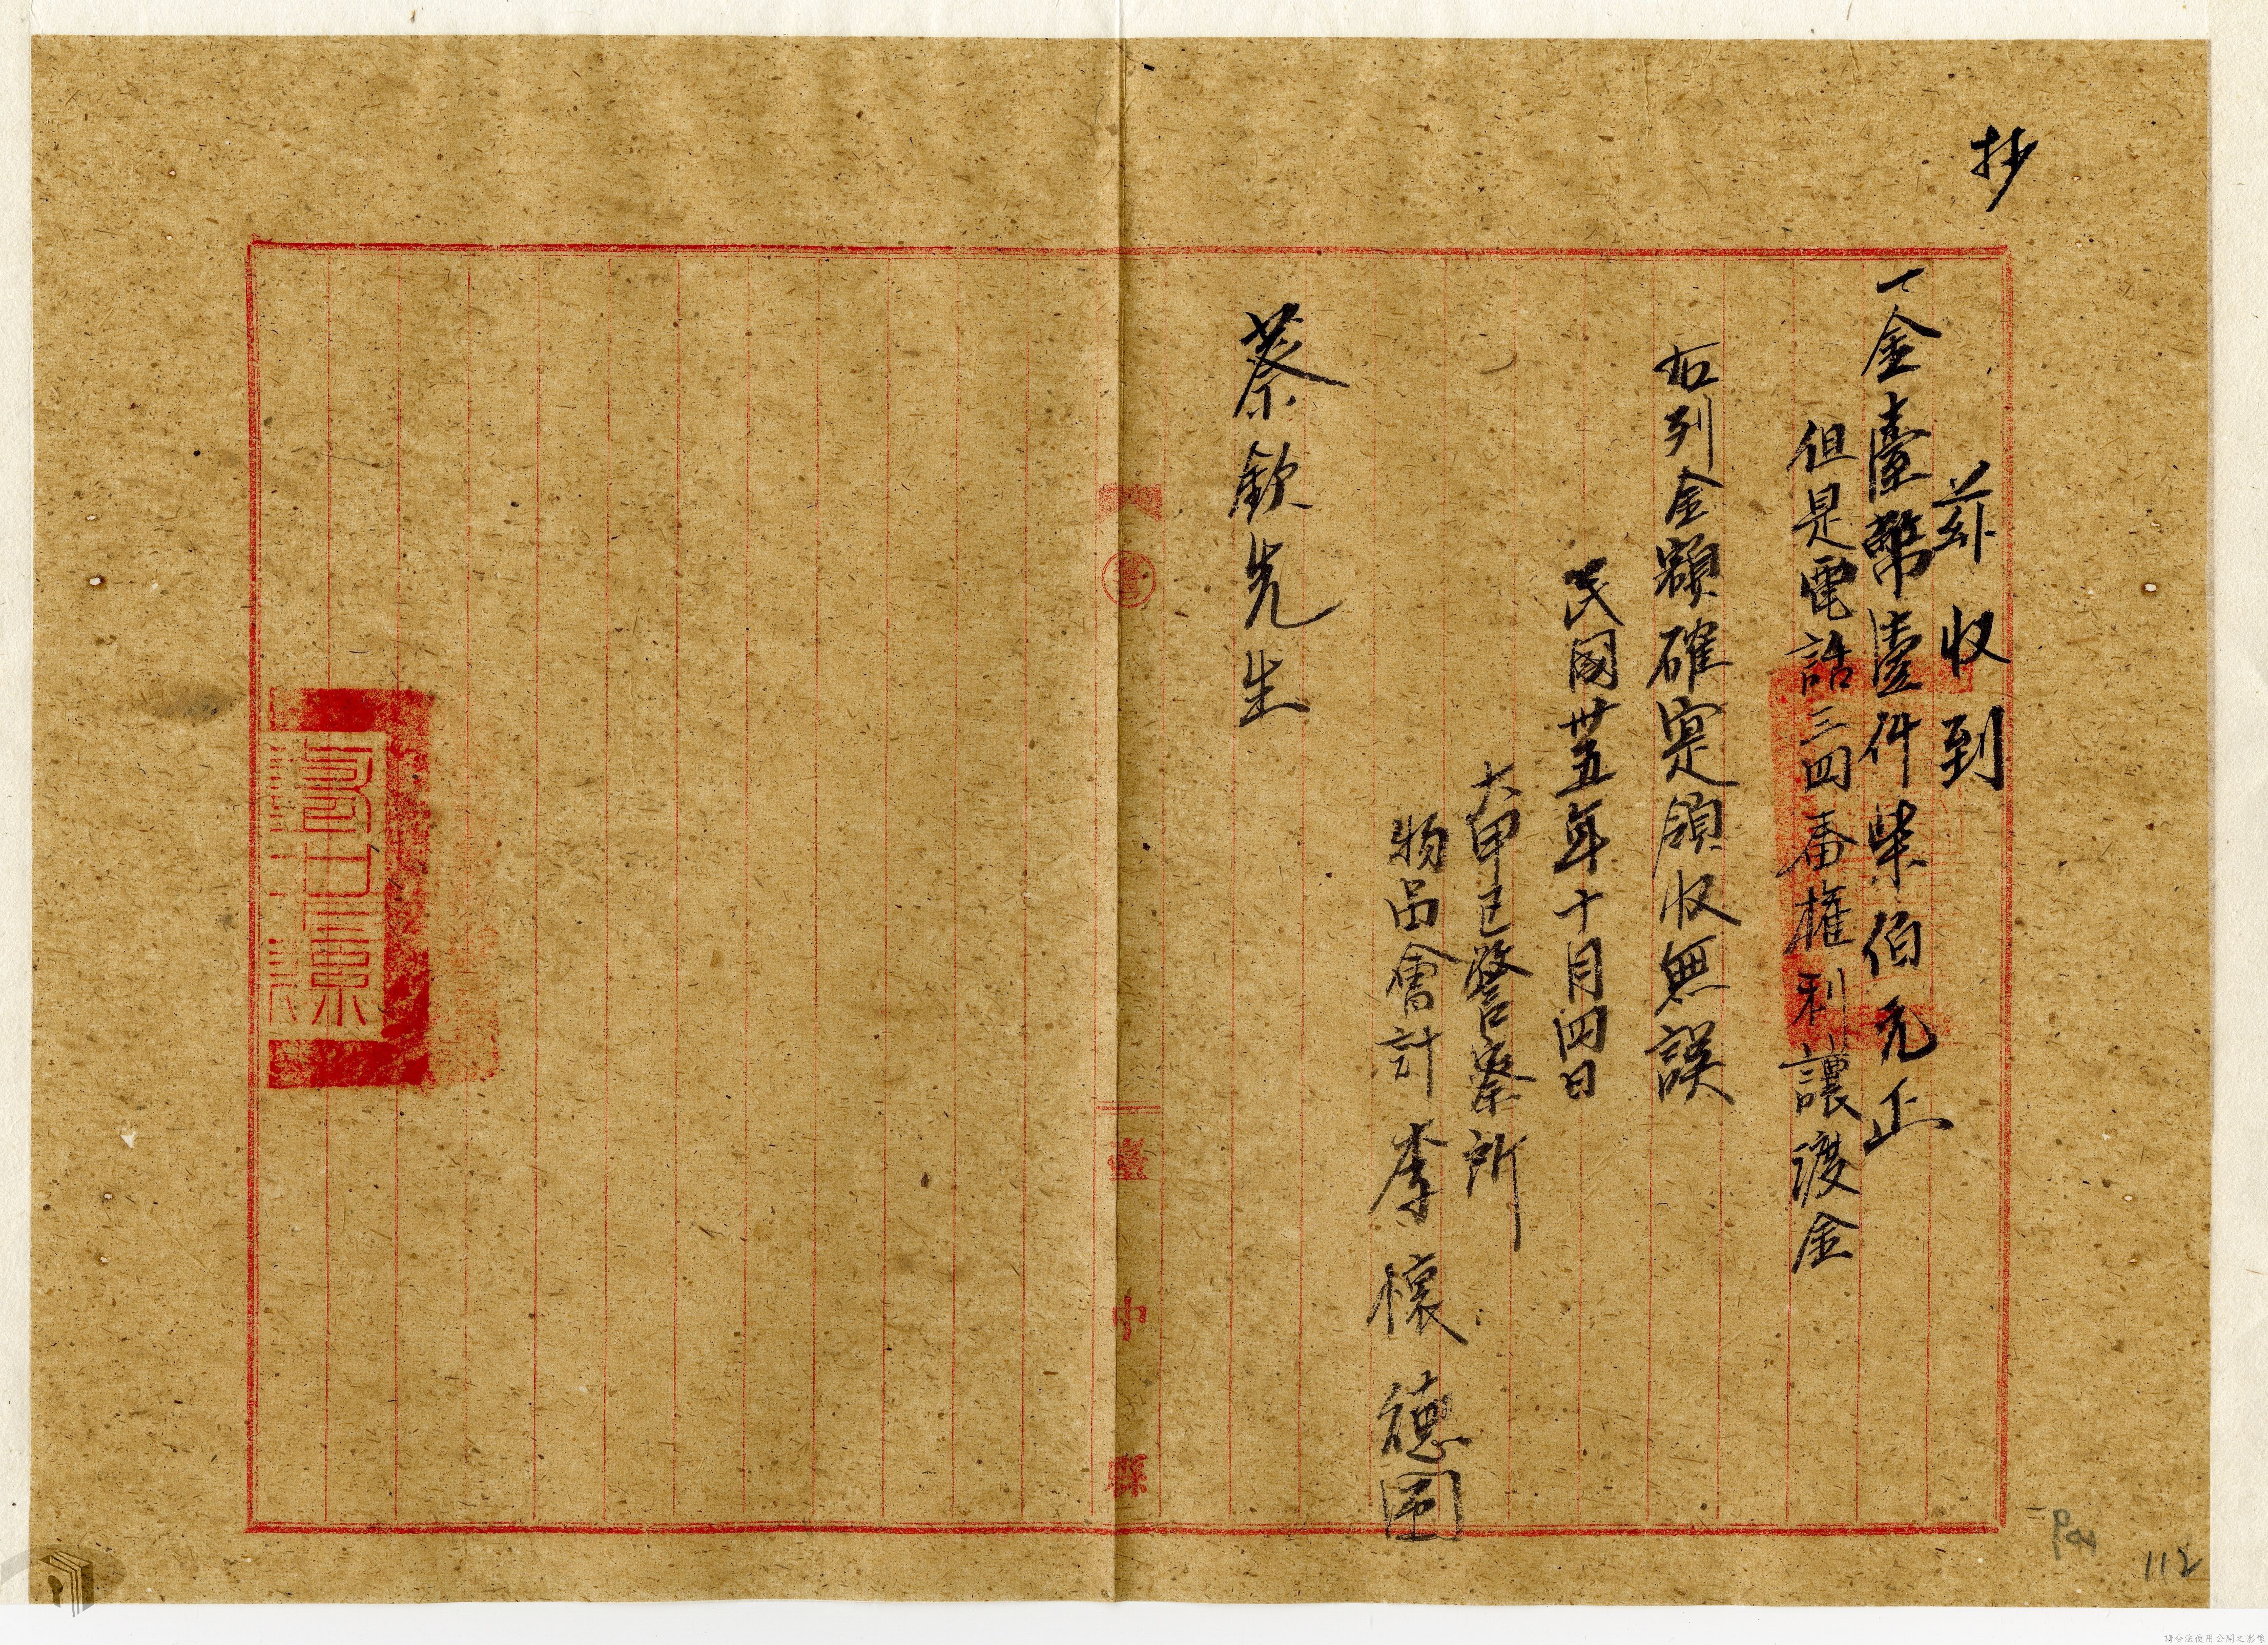 抄
茲收到
一金臺幣壹仟柒佰元正
但是電話三四番權利讓渡金
右列金額確寔領收無誤
民國卅五年十月四日
大甲區警察所
物品會計 李懷德 印
蔡欽先生
臺中縣
112
請合法使用公開之影像